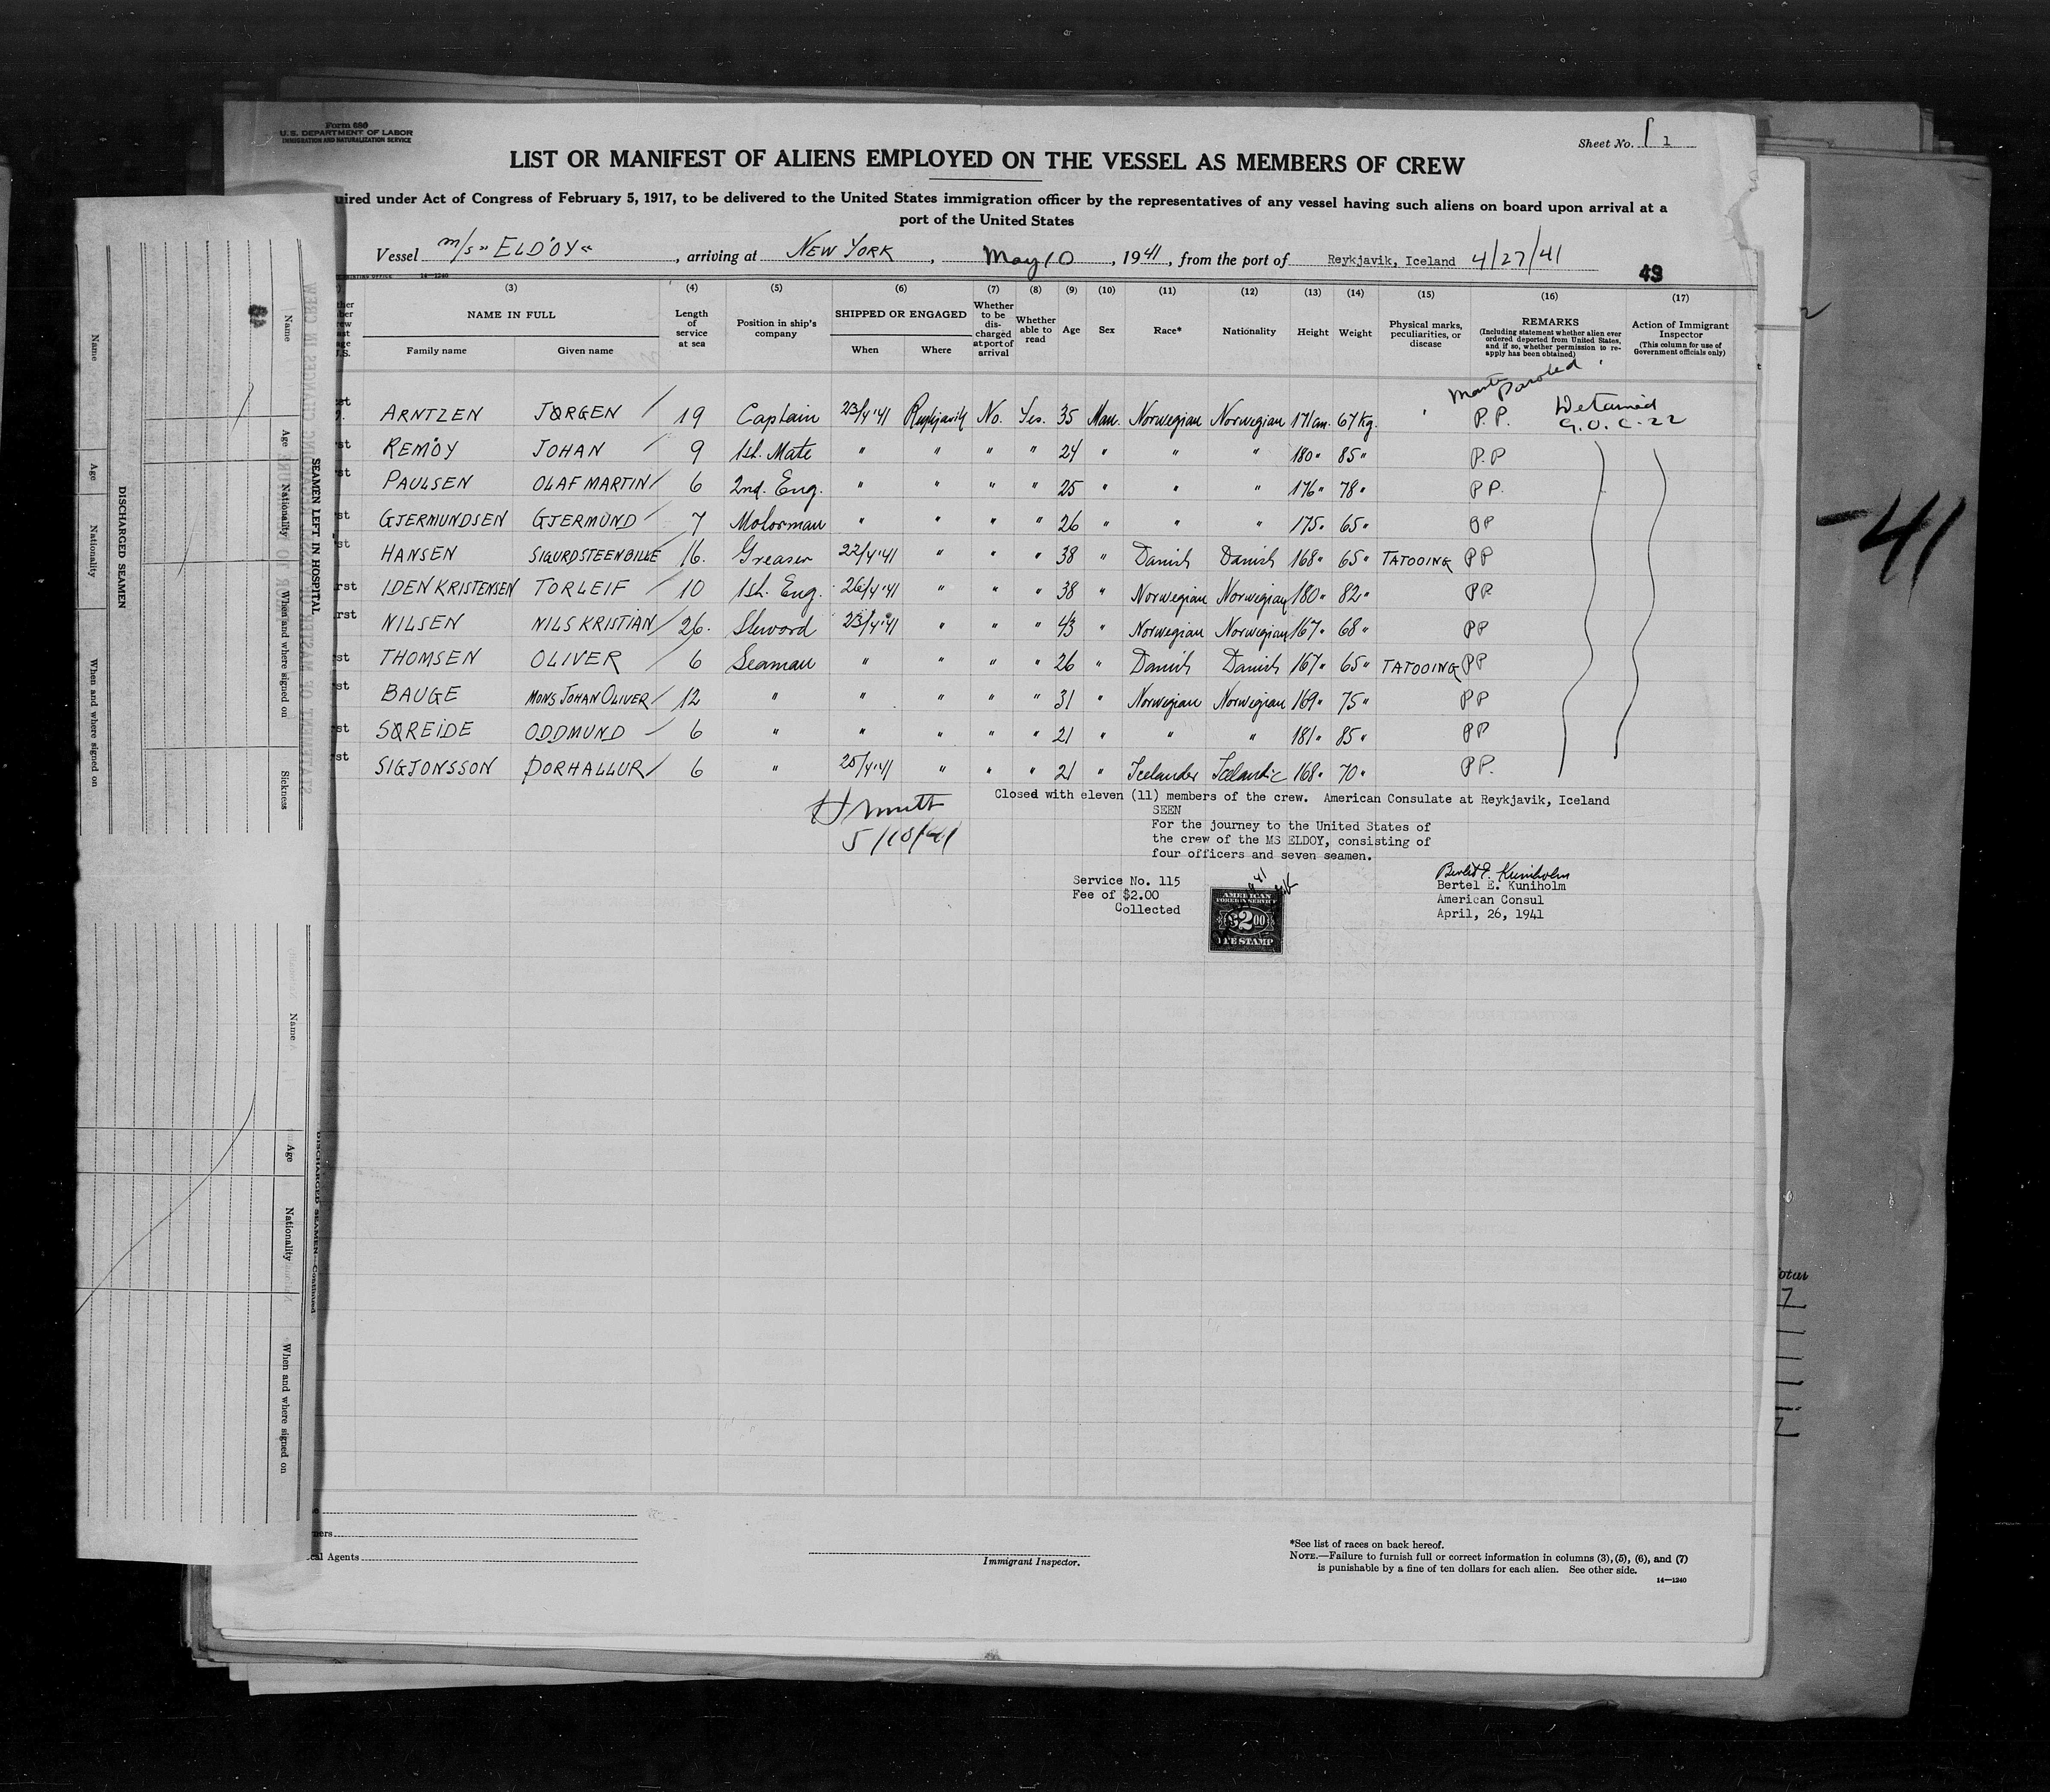 Form 680
U. S. DEPARTMENT OF LABOR
IMMIGRATION AND NATURALIZATION SERVICE
Sheet No. 1
LIST OR MANIFEST OF ALIENS EMPLOYED ON THE VESSEL AS MEMBERS OF CREW
uired under Act of Congress of February 5, 1917, to be delivered to the United States immigration officer by the representatives of any vessel having such aliens on board upon arrival at a
port of the United States
Vessel M/S „ELDÖY“, arriving at NEW YORK, May 10, 1941, from the port of Reykjavik, Iceland 4/27/41
14—1240
43
(3) (4) (5) (6) (7) (8) (9) (10) (11) (12) (13) (14) (15) (16) (17)
NAME IN FULL
Family name
Given name
Length of service at sea
Position in ship's company
SHIPPED OR ENGAGED
When
Where
Whether to be discharged at port of arrival
Whether able to read
Age
Sex
Race*
Nationality
Height
Weight
Physical marks, peculiarities, or disease
REMARKS
(Including statement whether alien ever ordered deported from United States, and if so, whether permission to reapply has been obtained)
Action of Immigrant Inspector
(This column for use of Government officials only)
Paroled
ARNTZEN JØRGEN / 19 Captain 23/4'41 Reykjavik No. Yes. 35 Man. Norwegian Norwegian 171cm. 67Kg. P.P. Detained
st REMÖY JOHAN / 9 1st. Mate " " " " 24 " " " 180" 85" P.P
st PAULSEN OLAF MARTIN / 6 2nd. Eng. " " " " 25 " " " 176" 78" PP.
st GJERMUNDSEN GJERMUND / 7 Motorman " " " " 26 " " " 175" 65" PP
st HANSEN SIGURD STEEN BILLE 16. Greaser 22/4'41 " " " 38 " Danish Danish 168" 65" TATOOING PP
rst IDEN KRISTENSEN TORLEIF / 10 1st. Eng. 26/4'41 " " " 38 " Norwegian Norwegian 180" 82" PP
rst NILSEN NILS KRISTIAN / 26. Steward 23/4'41 " " " 43 " Norwegian Norwegian 167" 68" PP
st THOMSEN OLIVER / 6 Seaman " " " " 26 " Danish Danish 167" 65" TATOOING PP
st BAUGE MONS JOHAN OLIVER / 12 " " " " " 31 " Norwegian Norwegian 169" 75" PP
st SØREIDE ODDMUND / 6 " " " " " 21 " " " 181" 85" PP
st SIGJONSSON ÞORHALLUR / 6 " 25/4'41 " " " 21 " Icelander Icelandic 168" 70" PP.
5/10/41
Closed with eleven (11) members of the crew. American Consulate at Reykjavik, Iceland
SEEN
For the journey to the United States of
the crew of the MS ELDOY, consisting of
four officers and seven seamen.
Service No. 115
Fee of $2.00
Collected
AMERICAN
FOREIGN SERVICE
$2.00
FEE STAMP
Bertel E. Kuniholm
Bertel E. Kuniholm
American Consul
April, 26, 1941
-41
cal Agents
Immigrant Inspector.
*See list of races on back hereof.
NOTE.—Failure to furnish full or correct information in columns (3), (5), (6), and (7)
is punishable by a fine of ten dollars for each alien. See other side.
14—1240
SEAMEN LEFT IN HOSPITAL
Name
Age
Nationality
When and where signed on
Sickness
DISCHARGED SEAMEN
Name
Age
Nationality
When and where signed on
DISCHARGED SEAMEN—Continued
Name
Age
Nationality
When and where signed on